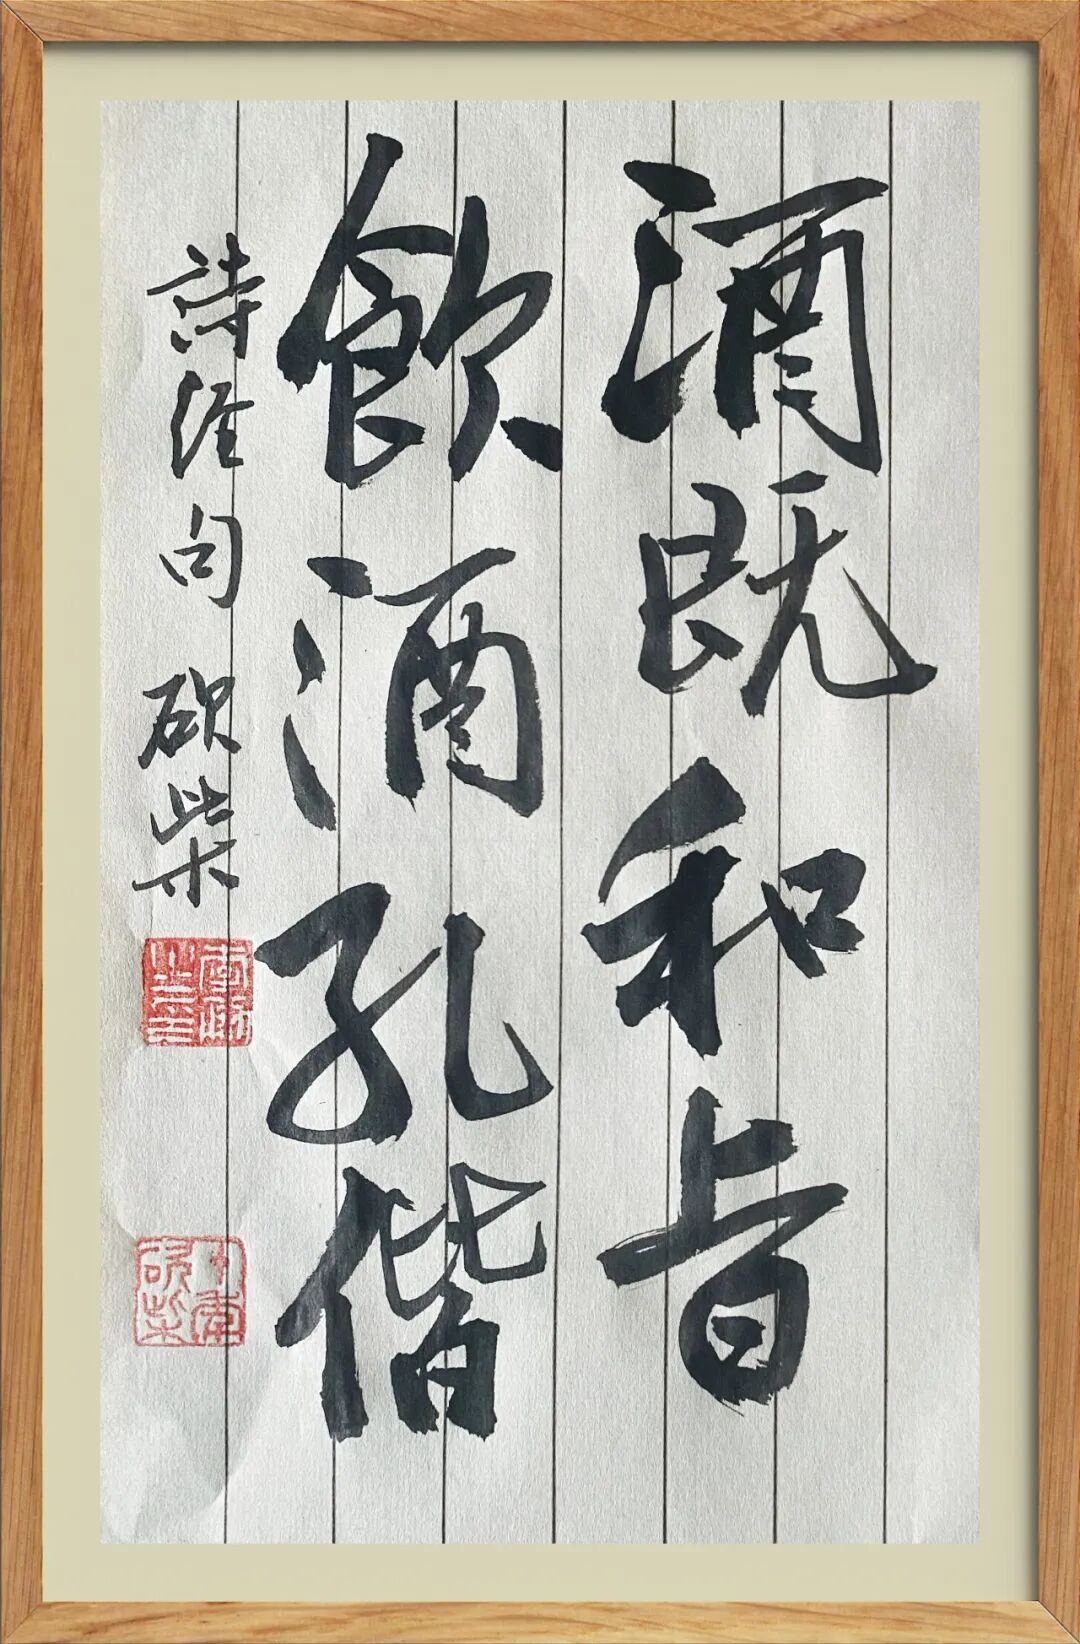 酒既和旨
飲酒孔偕
詩经句 砍柴